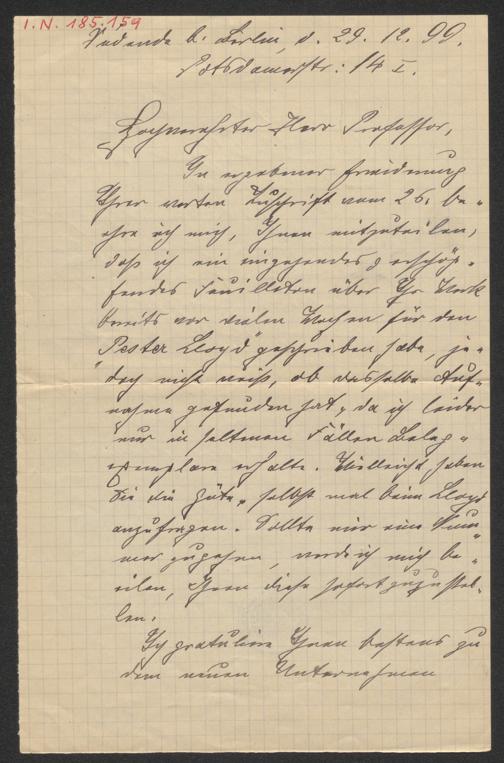 I.N. 185.159
b. Berlin, d. 29. 12. 99.
Potsdamerstr: 14 I.
Hochverehrter Herr Professor,
In ergebener Erwiderung
Ihrer werten Zuschrift vom 26. be-
ehre ich mich, Ihnen mitzuteilen,
daß ich ein eingehendes & erschöp-
fendes Feuilleton über Ihr Werk
bereits vor vielen Wochen für den
"Pester Lloyd" geschrieben habe, je-
doch nicht weiß, ob dasselbe Auf-
nahme gefunden hat, da ich leider
nur in seltenen Fällen Beleg-
exemplare erhalte. Vielleicht haben
Sie die Güte, selbst mal beim Lloyd
anzufragen. Sollte mir eine Num-
mer zugehen, werde ich mich be-
eilen, Ihnen diese sofort zuzustel-
len.
Ich gratuliere Ihnen bestens zu
dem neuen Unternehmen